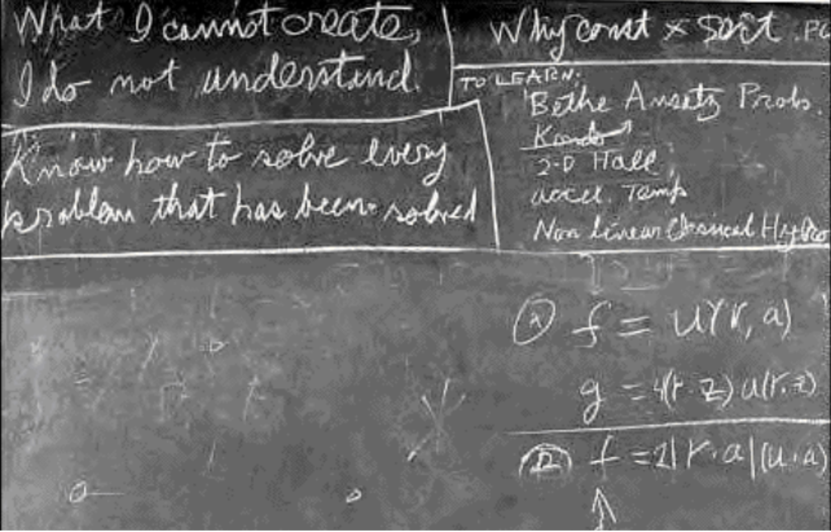 What I cannot create,
I do not understand.
Know how to solve every
problem that has been solved
Why const × sort .PO
TO LEARN:
Bethe Ansatz Probs.
Kondo
2-D Hall
accel. Temp
Non linear Classical Hydro
f = u(r, a)
g = 4(r·z) u(r, z)
f = 2|r·a|(u·a)